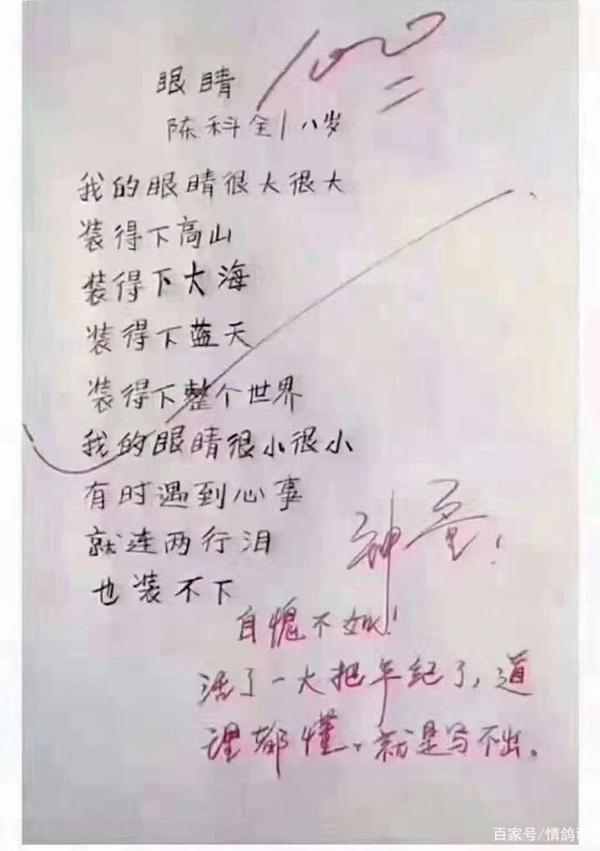 100
眼睛
陈科全/八岁
我的眼睛很大很大
装得下高山
装得下大海
装得下蓝天
装得下整个世界
我的眼睛很小很小
有时遇到心事
就连两行泪
也装不下
神童!
自愧不如!
活了一大把年纪了,道
理都懂,就是写不出。
百家号/情鸽